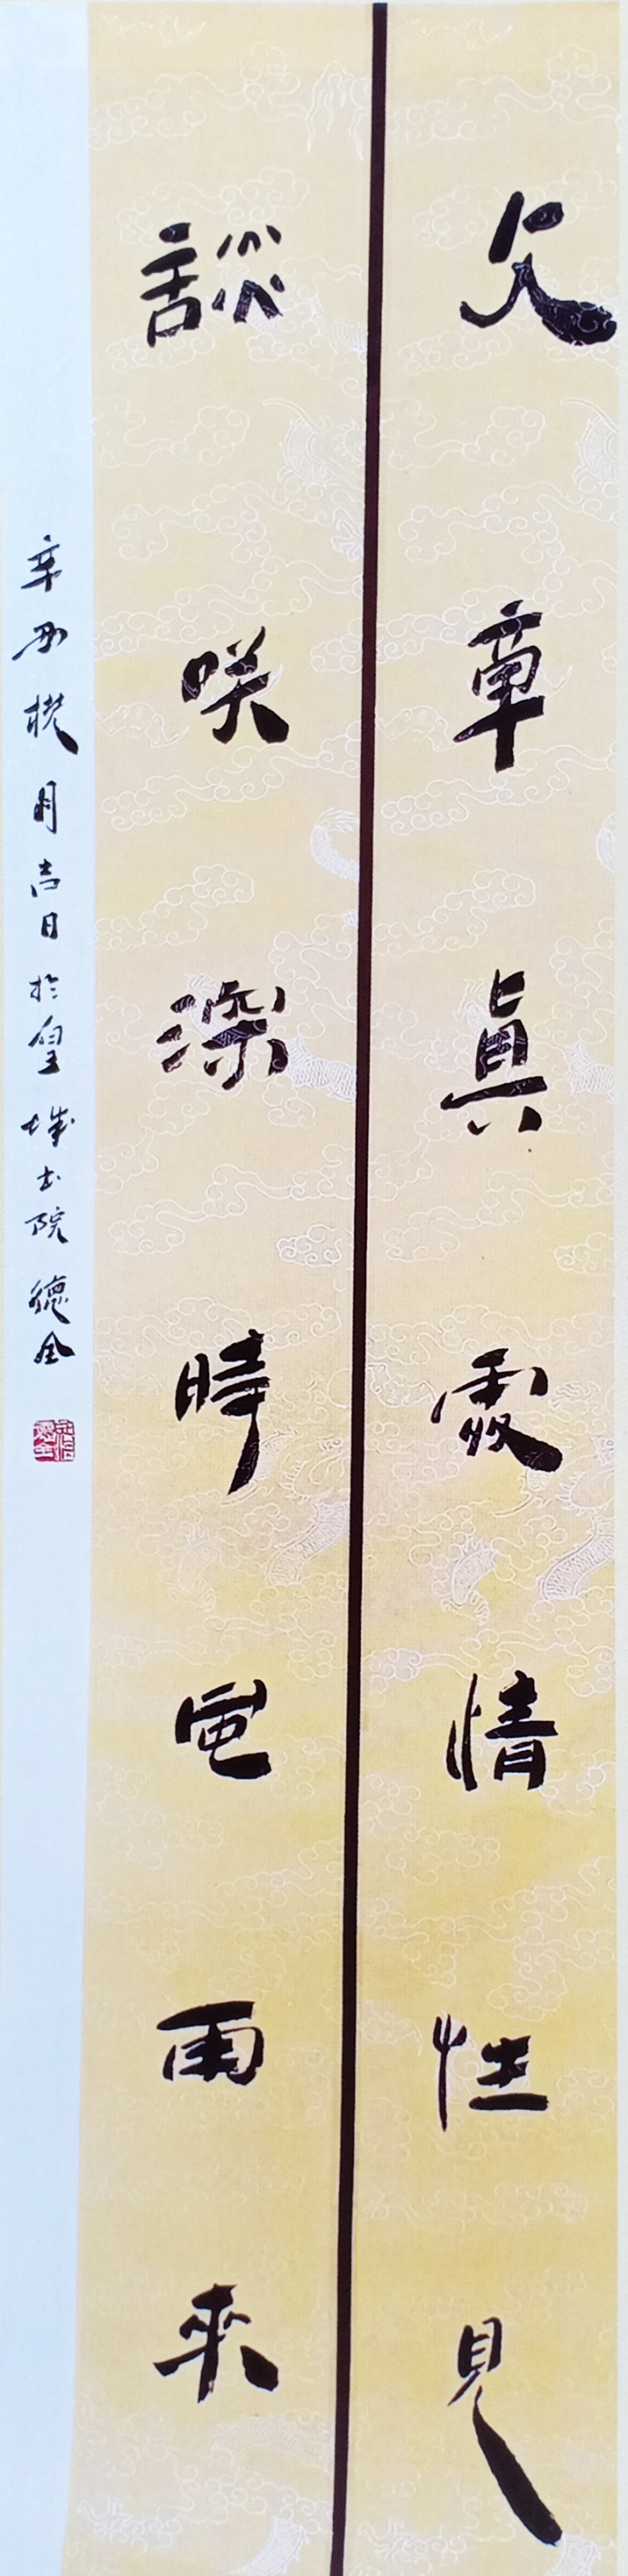 文章真處情性見
談咲深時風雨來
辛丑槐月吉日於皇城書院德全